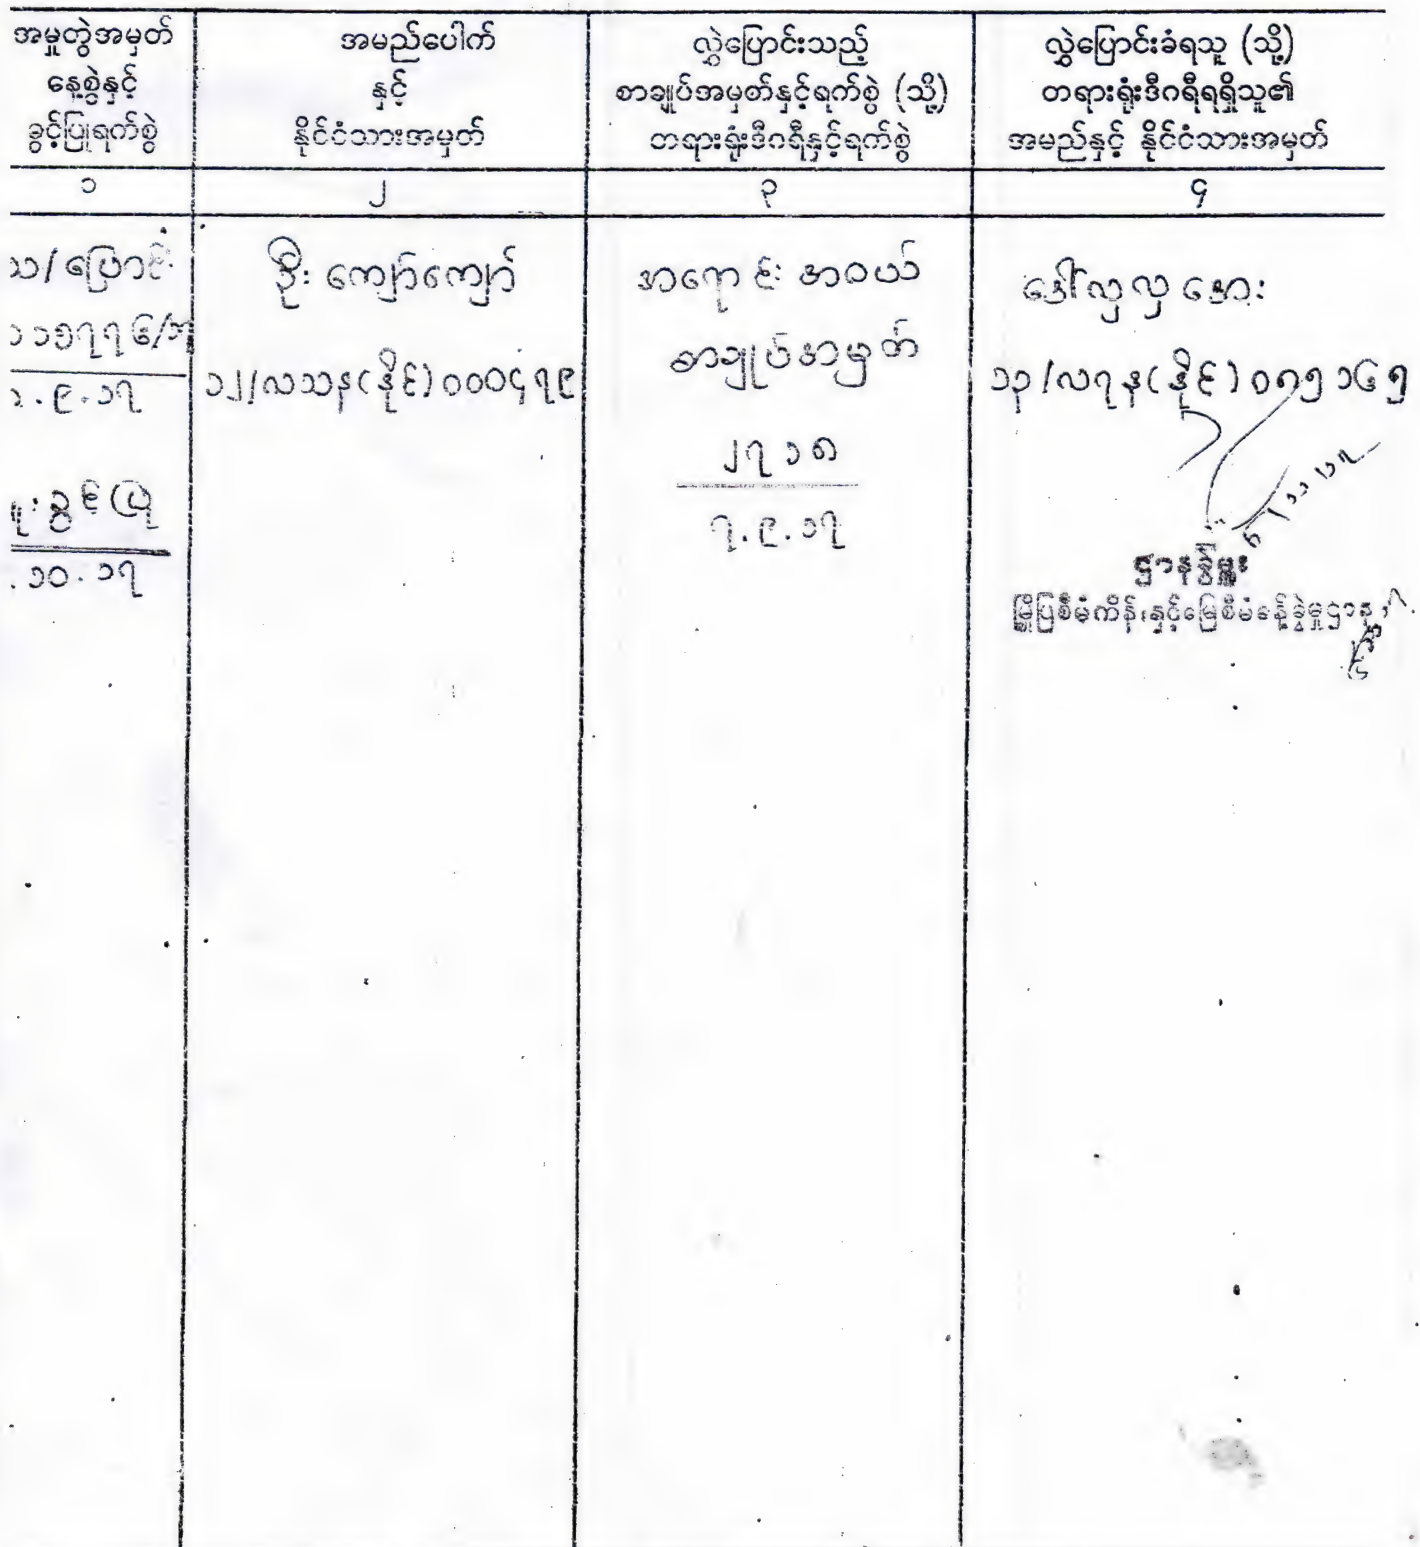 အမှုတွဲအမှတ်
နေ့စွဲနှင့်
ခွင့်ပြုရက်စွဲ
အမည်ပေါက်
နှင့်
နိုင်ငံသားအမှတ်
လွှဲပြောင်းသည့်
စာချုပ်အမှတ်နှင့်ရက်စွဲ (သို့)
တရားရုံးဒီဂရီနှင့်ရက်စွဲ
လွှဲပြောင်းခံရသူ (သို့)
တရားရုံးဒီဂရီရရှိသူ၏
အမည်နှင့် နိုင်ငံသားအမှတ်
၁
၂
၃
၄
သ/ပြောင်း
၁၅၇၇၆/
.၉.၁၇
ခွင့်ပြု
.၁၀.၁၇
ဦးကျော်ကျော်
၁၂/လသန(နိုင်)၀၀၀၄၇၉
အရောင်းအဝယ်
စာချုပ်အမှတ်
၂၇၁၈
၇.၉.၁၇
ဒေါ်လှလှအေး
၁၃/လရန(နိုင်)၀၈၅၁၆၅
ဌာနခွဲမှူး
မြို့ပြစီမံကိန်းနှင့်မြေစီမံခန့်ခွဲမှုဌာန